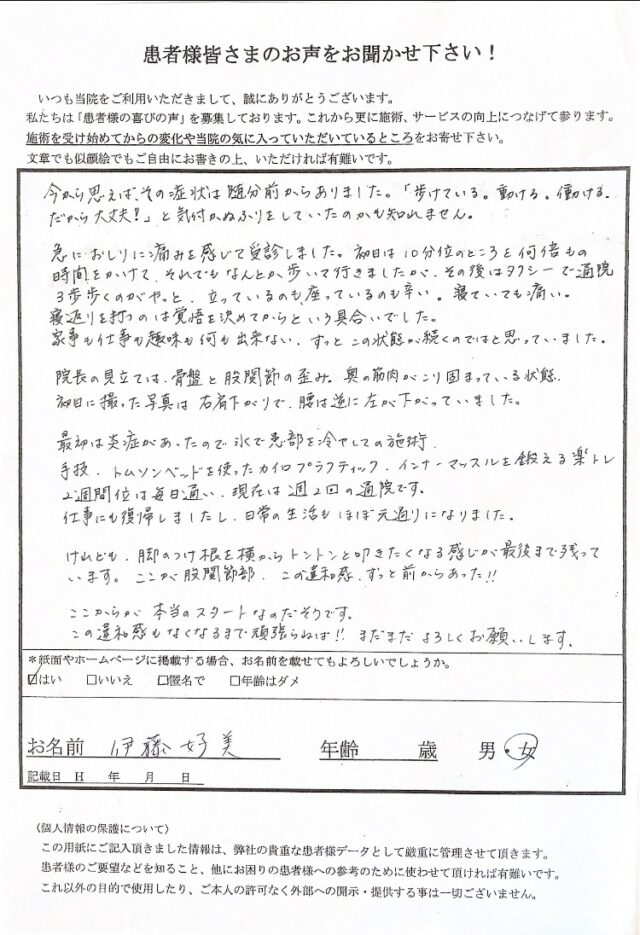 患者様皆さまのお声をお聞かせ下さい！
いつも当院をご利用いただきまして、誠にありがとうございます。
私たちは「患者様の喜びの声」を募集しております。これから更に施術、サービスの向上につなげて参ります。
施術を受け始めてからの変化や当院の気に入っていただいているところをお寄せ下さい。
文章でも似顔絵でもご自由にお書きの上、いただければ有難いです。
今から思えば、その症状は随分前からありました。「歩けている。動ける。働ける。
だから大丈夫！」と気付かぬふりをしていたのかも知れません。
急におしりに痛みを感じて受診しました。初日は10分位のところを何倍もの
時間をかけて、それでもなんとか歩いて行きましたが、その後はタクシーで通院
3歩歩くのがやっと、立っているのも座っているのも辛い。寝ていても痛い。
寝返りを打つのは覚悟を決めてからという具合いでした。
家事も仕事も趣味も何も出来ない、ずっとこの状態が続くのではと思っていました。
院長の見立ては、骨盤と股関節の歪み。奥の筋肉がこり固まっている状態、
初日に撮った写真は右肩下がりで、腰は逆に左が下がっていました。
最初は炎症があったので氷で患部を冷やしての施術、
手技、トムソンベッドを使ったカイロプラクティック、インナーマッスルを鍛える楽トレ
2週間位は毎日通い、現在は週2回の通院です。
仕事にも復帰しましたし、日常の生活もほぼ元通りになりました。
けれども、脚のつけ根を横からトントンと叩きたくなる感じが最後まで残って
います。ここが股関節部、この違和感、ずっと前からあった!!
ここからが本当のスタートなのだそうです。
この違和感もなくなるまで頑張らねば!! まだまだよろしくお願いします。
*紙面やホームページに掲載する場合、お名前を載せてもよろしいでしょうか。
☑はい □いいえ □匿名で □年齢はダメ
お名前 伊藤好美 年齢 歳 男・女
記載日 H 年 月 日
〈個人情報の保護について〉
この用紙にご記入頂きました情報は、弊社の貴重な患者様データとして厳重に管理させて頂きます。
患者様のご要望などを知ること、他にお困りの患者様への参考のために使わせて頂ければ有難いです。
これ以外の目的で使用したり、ご本人の許可なく外部への開示・提供する事は一切ございません。